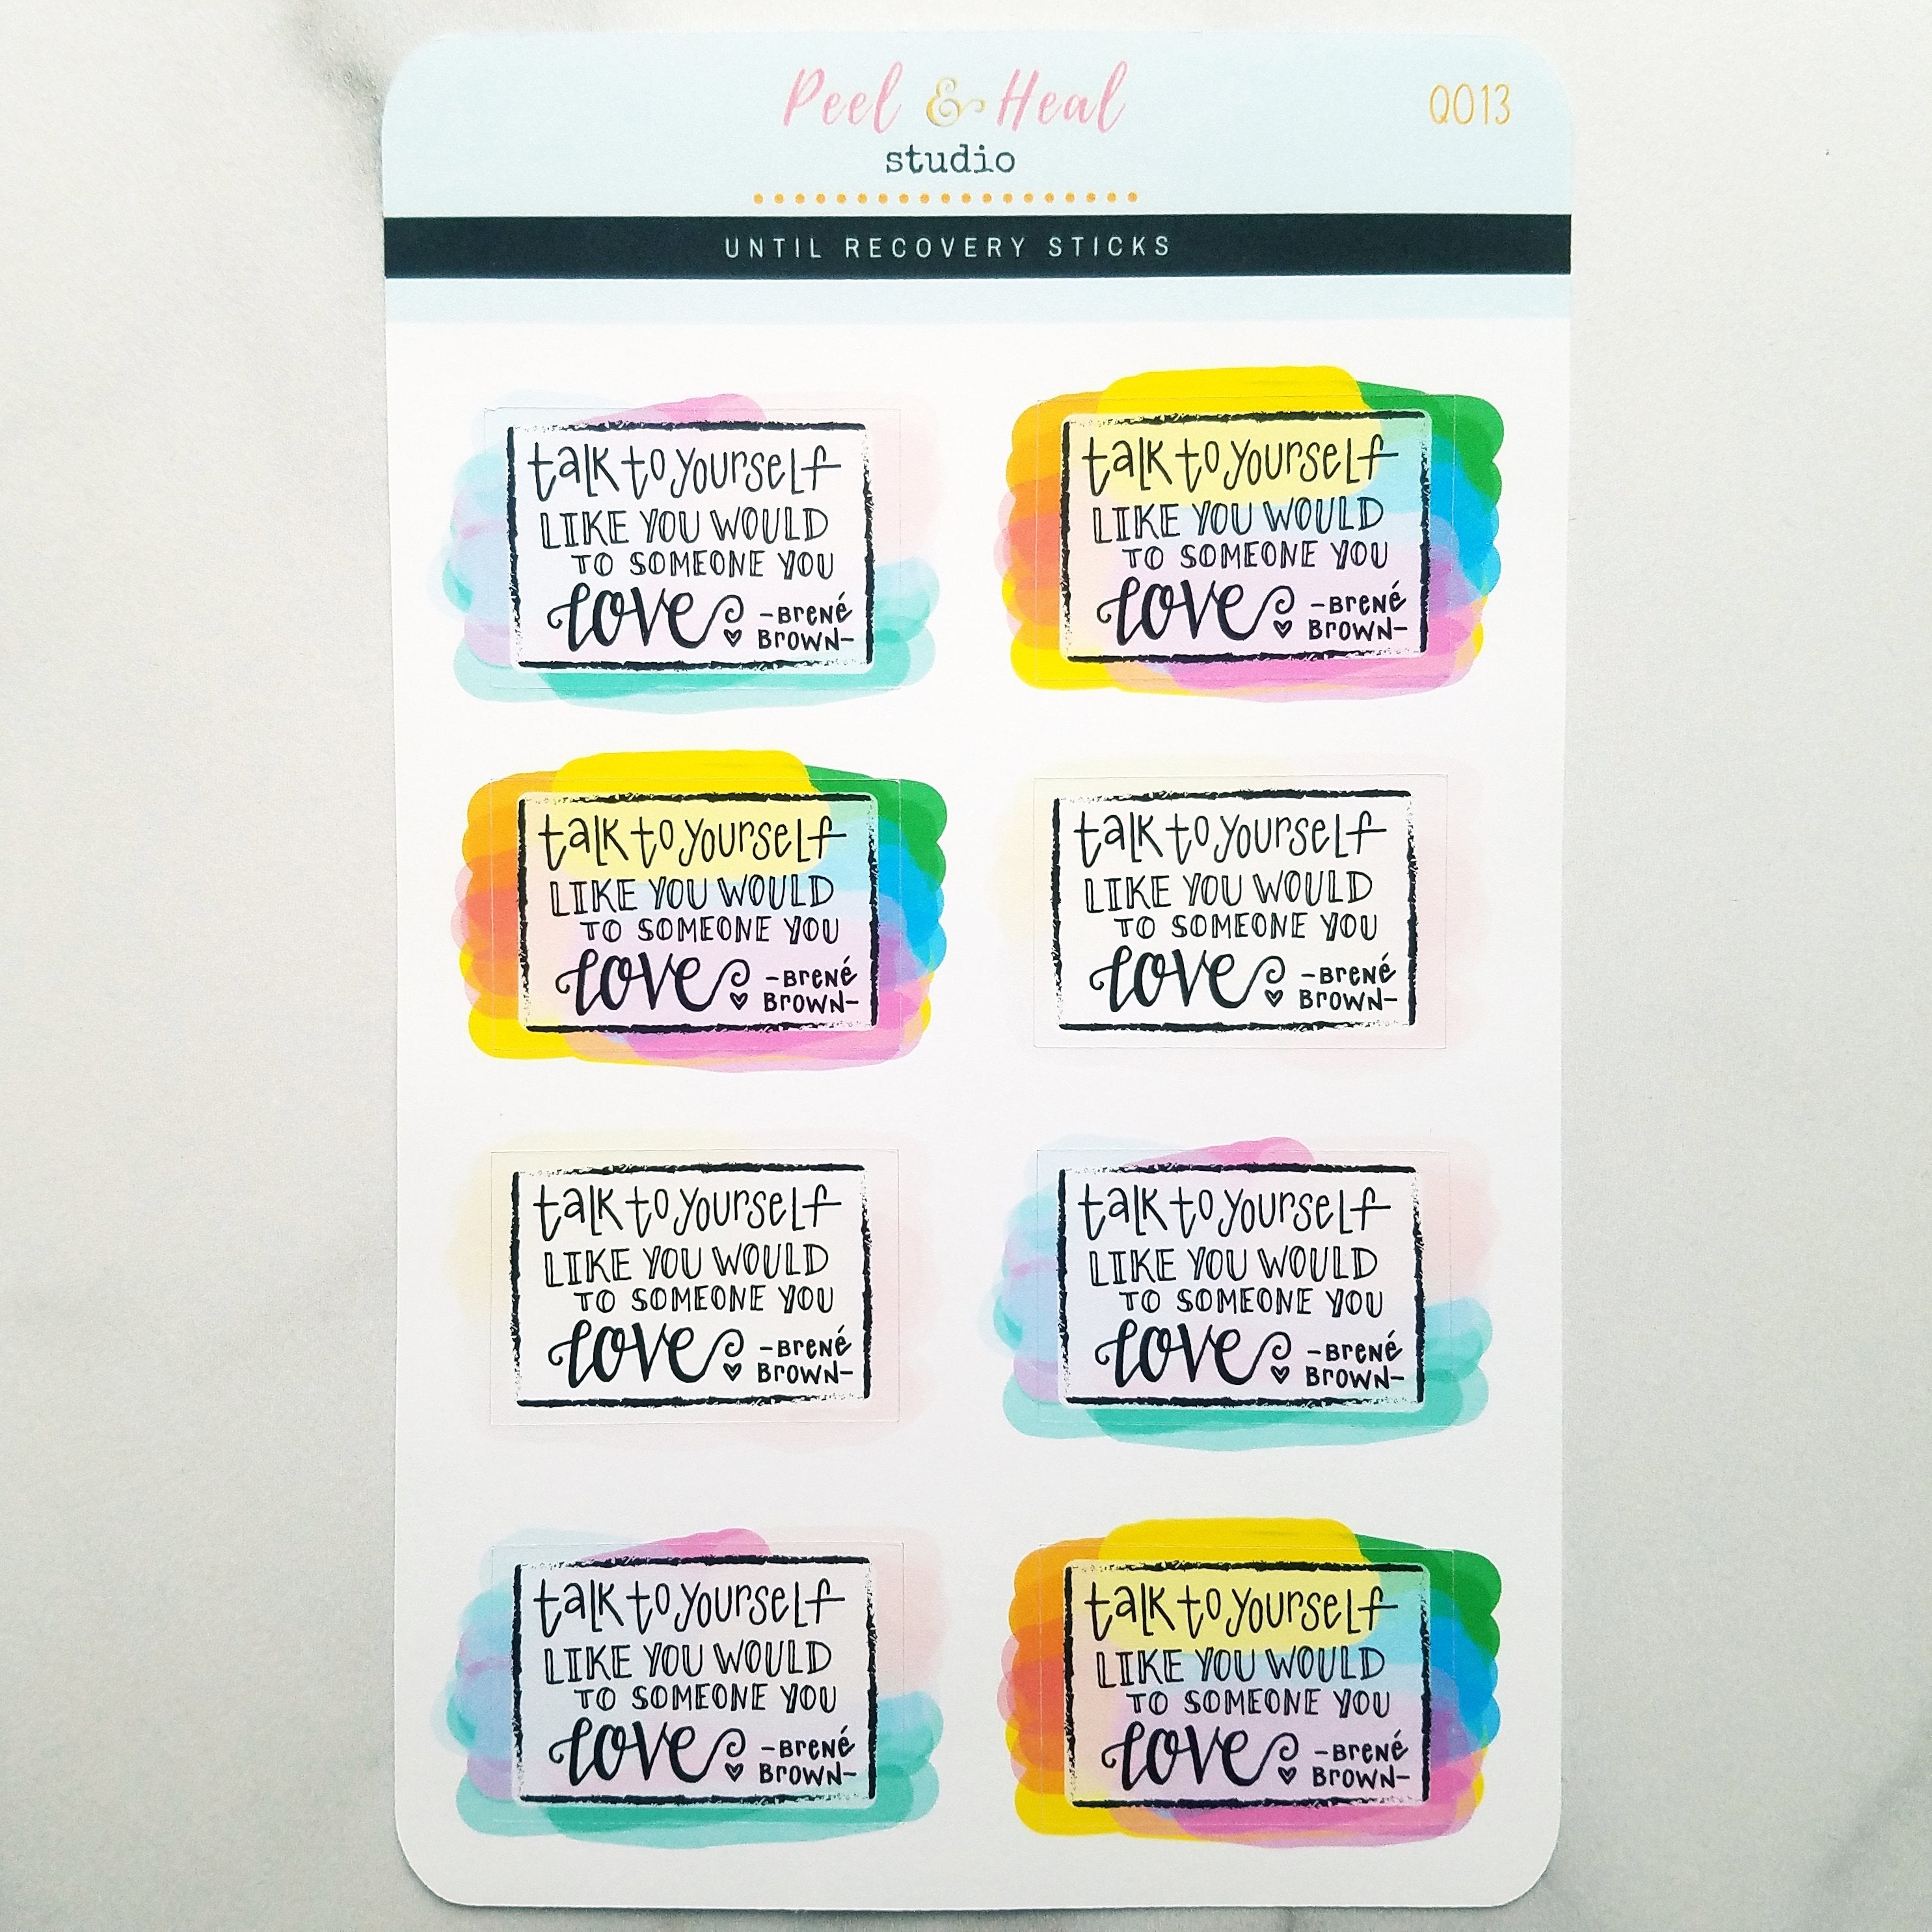 Peel & Heal
Q013
studio
UNTIL RECOVERY STICKS
talk to yourself
LIKE YOU WOULD
TO SOMEONE YOU
love -Brené
Brown-
talk to yourself
LIKE YOU WOULD
TO SOMEONE YOU
love -Brené
Brown-
talk to yourself
LIKE YOU WOULD
TO SOMEONE YOU
love -Brené
Brown-
talk to yourself
LIKE YOU WOULD
TO SOMEONE YOU
love -Brené
Brown-
talk to yourself
LIKE YOU WOULD
TO SOMEONE YOU
love -Brené
Brown-
talk to yourself
LIKE YOU WOULD
TO SOMEONE YOU
love -Brené
Brown-
talk to yourself
LIKE YOU WOULD
TO SOMEONE YOU
love -Brené
Brown-
talk to yourself
LIKE YOU WOULD
TO SOMEONE YOU
love -Brené
Brown-